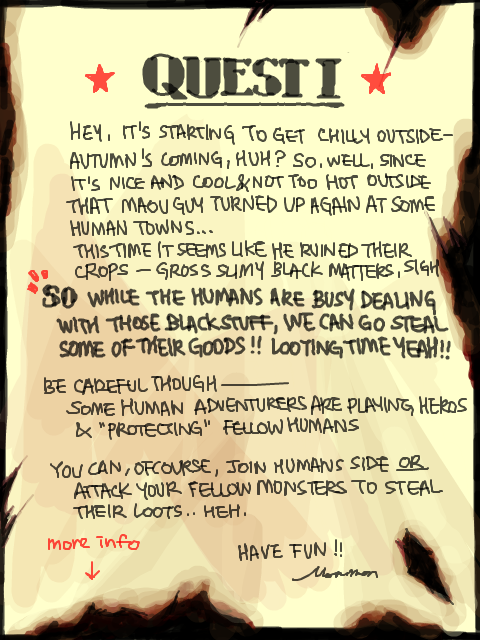 QUEST I
HEY, IT'S STARTING TO GET CHILLY OUTSIDE-
AUTUMN'S COMING, HUH? SO, WELL, SINCE
IT'S NICE AND COOL & NOT TOO HOT OUTSIDE
THAT MAOU GUY TURNED UP AGAIN AT SOME
HUMAN TOWNS...
THIS TIME IT SEEMS LIKE HE RUINED THEIR
CROPS - GROSS SLIMY BLACK MATTERS, SIGH
SO WHILE THE HUMANS ARE BUSY DEALING
WITH THOSE BLACK STUFF, WE CAN GO STEAL
SOME OF THEIR GOODS!! LOOTING TIME YEAH!!
BE CAREFUL THOUGH —
SOME HUMAN ADVENTURERS ARE PLAYING HEROS
& "PROTECTING" FELLOW HUMANS
YOU CAN, OFCOURSE, JOIN HUMANS SIDE OR
ATTACK YOUR FELLOW MONSTERS TO STEAL
THEIR LOOTS.. HEH.
more info
HAVE FUN!!